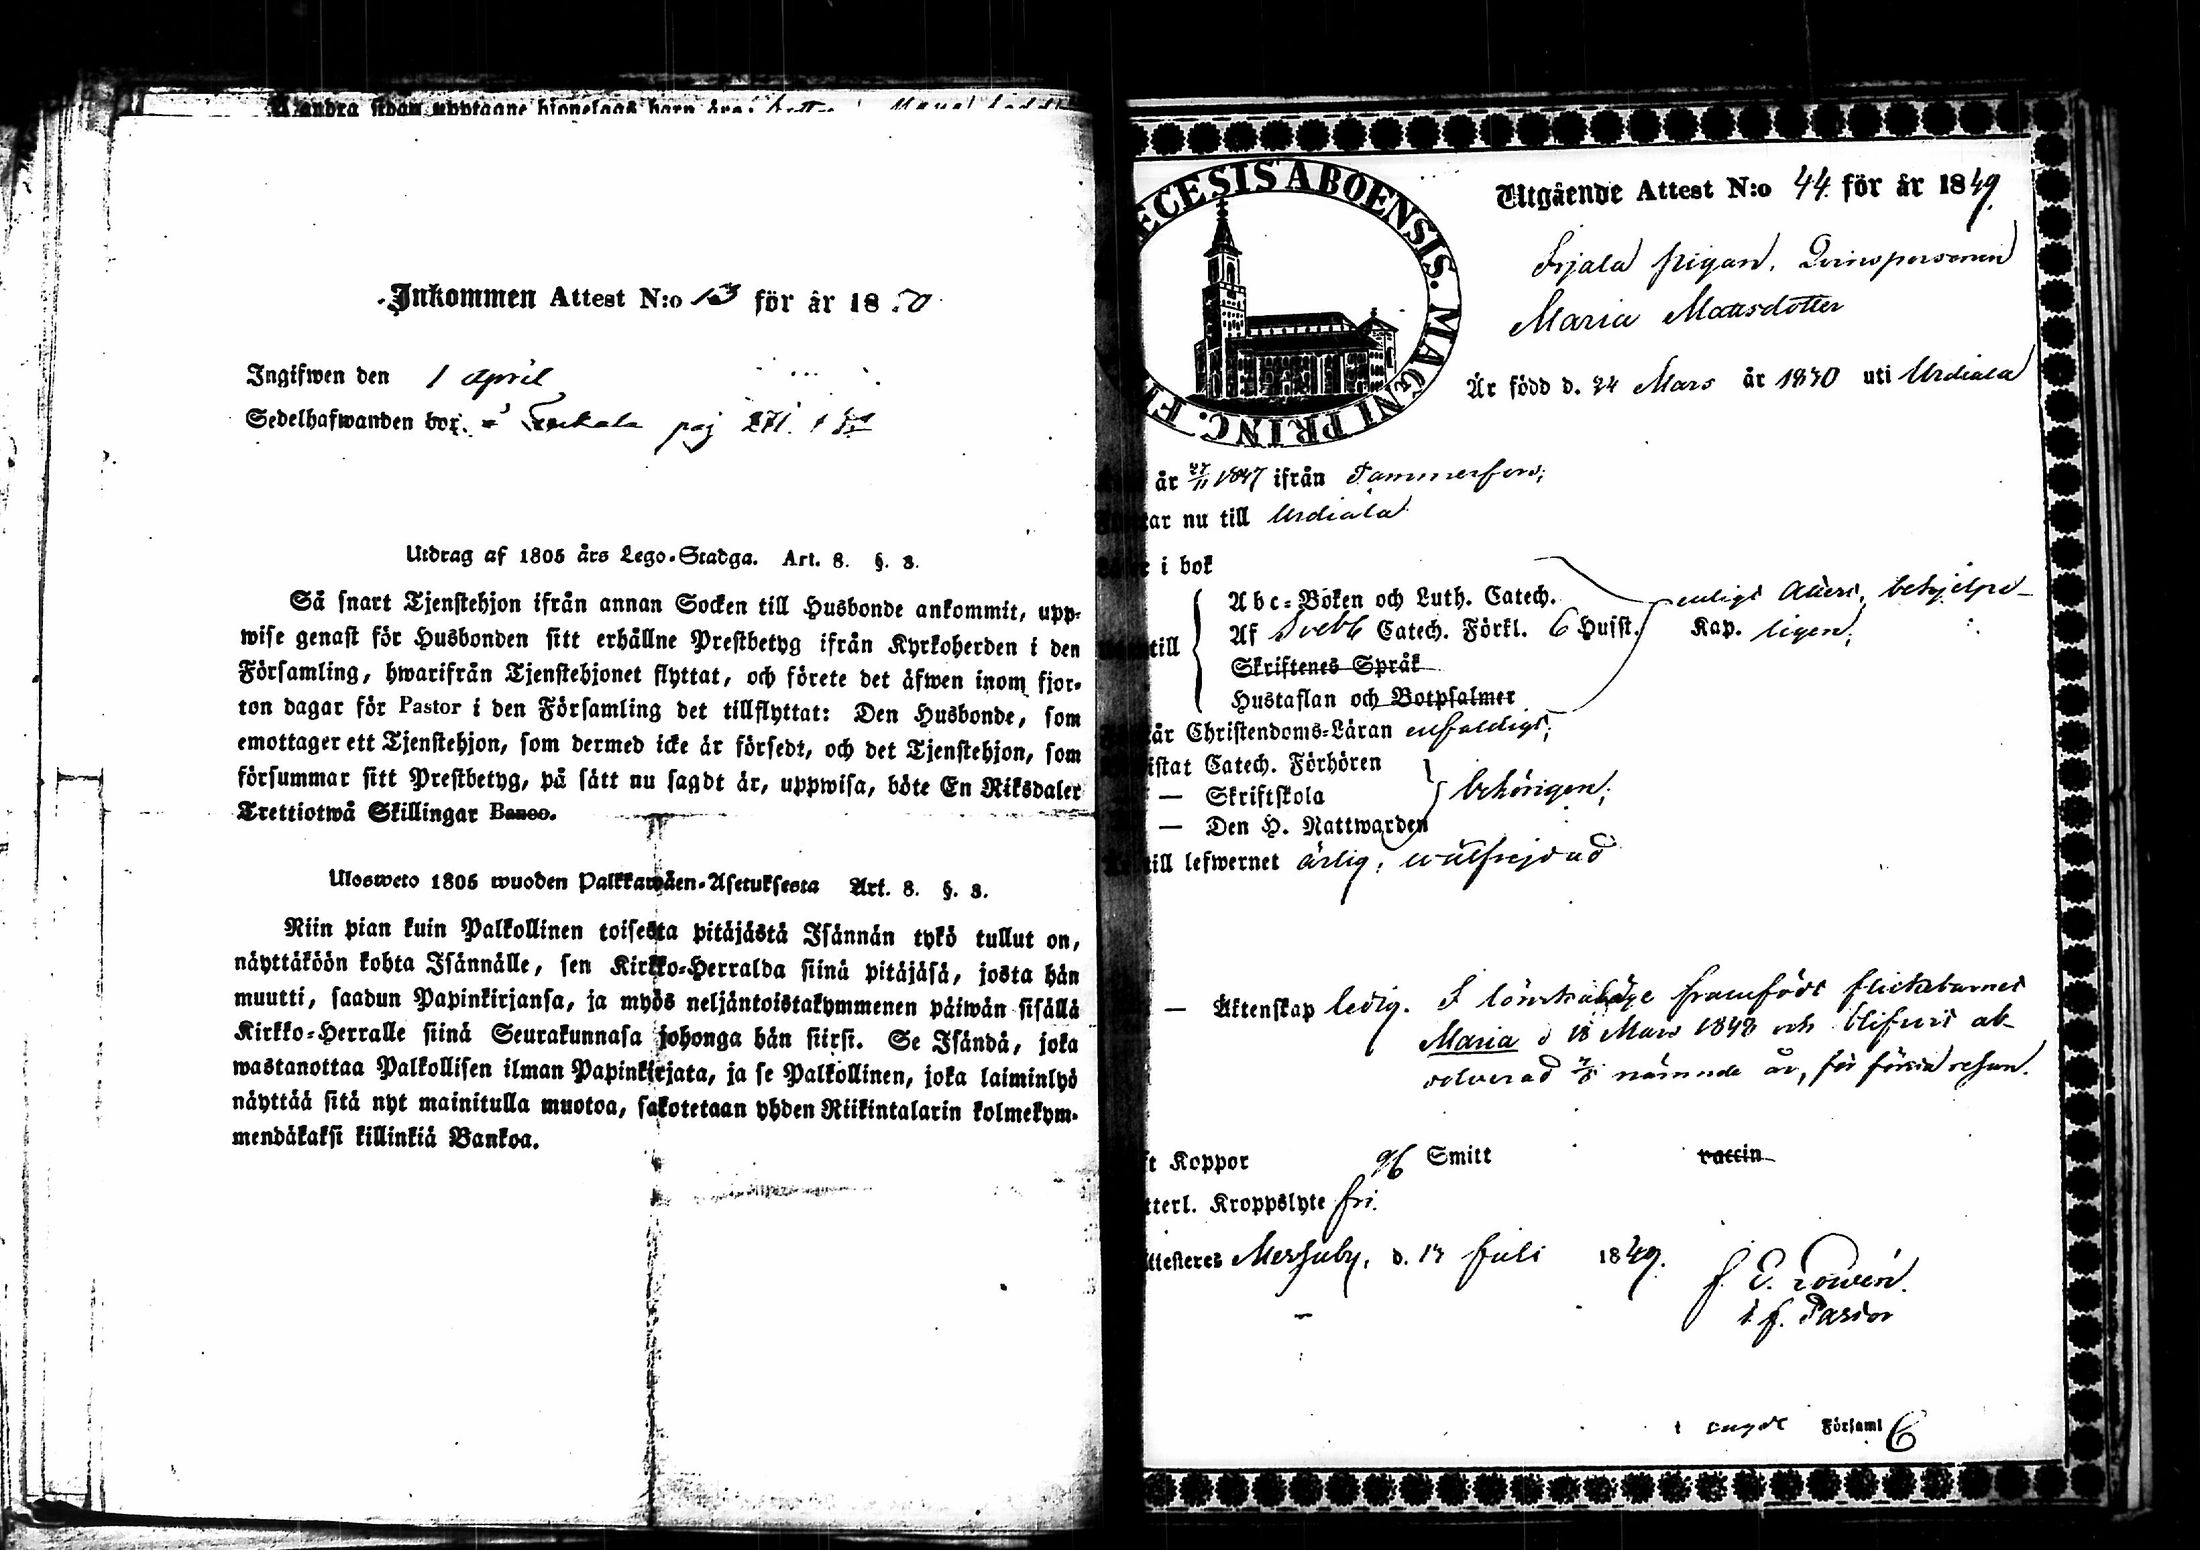 å andra sidan upptagne hionelags barn äro:
Inkommen Attest N:o 13 för år 1850
Ingifwen den 1 April
Sedelhafwanden bor. pag 271.
Utdrag af 1805 års Lego-Stadga. Art. 8. §. 3.
Så snart Tjenstehjon ifrån annan Socken till Husbonde ankommit, upp-
wise genast för Husbonden sitt erhållne Prestbetyg ifrån Kyrkoherden i den
Församling, hwarifrån Tjenstehjonet flyttat, och förete det äfwen inom fjor-
ton dagar för Pastor i den Församling det tillflyttat: Den Husbonde, som
emottager ett Tjenstehjon, som dermed icke är försedt, och det Tjenstehjon, som
försummar sitt Prestbetyg, på sätt nu sagdt är, uppwisa, böte En Riksdaler
Trettiotwå Skillingar Banco.
Ulosweto 1805 wuoden Palkkawäen-Asetuksesta Art. 8. §. 3.
Niin pian kuin Palkollinen toisesta pitäjästä Isännän tykö tullut on,
näyttäköön kohta Isännälle, sen Kirkko-Herralda siinä pitäjäsä, josta hän
muutti, saadun Papinkirjansa, ja myös neljäntoistakymmenen päiwän sisällä
Kirkko-Herralle siinä Seurakunnasa johonga hän siirsi. Se Isändä, joka
wastanottaa Palkollisen ilman Papinkirjata, ja se Palkollinen, joka laiminlyö
näyttää sitä nyt mainitulla muotoa, sakotetaan yhden Riikintalarin kolmekym-
mendäkaksi killinkiä Bankoa.
ECESIS ABOENSIS. MAGNI PRINC. FI
Utgående Attest N:o 44 för år 1849.
pigan, Qvinspersonen
Maria Mattsdotter
Är född d. 24 Mars år 1830 uti Urdiala
år 27/11 1847 ifrån Tammerfors;
ar nu till Urdiala
i bok
Abc-Boken och Luth. Catech. enligt behjelpe-
till Af Sveb. Catech. Förkl. 6 Huist. Kap. ligen;
Skriftenes Språk
Hustaflan och Botpsalmer
år Christendoms-Läran enfaldigt;
istat Catech. Förhören
— Skriftskola behörigen;
— Den H. Nattwarden
till lefwernet ärlig, wälfrejdad
— Äktenskap ledig. I lönskaläge framfödt flickebarnet
Maria d 18 Mars 1848 och blifvit ab-
solverad nämnde år, för första resan.
t Koppor Smitt vaccin
tterl. Kroppslyte fri.
ttesteres Messuby, d. 17 Juli 1849.
J. E. Lowén.
t. f. Pastor
Församl